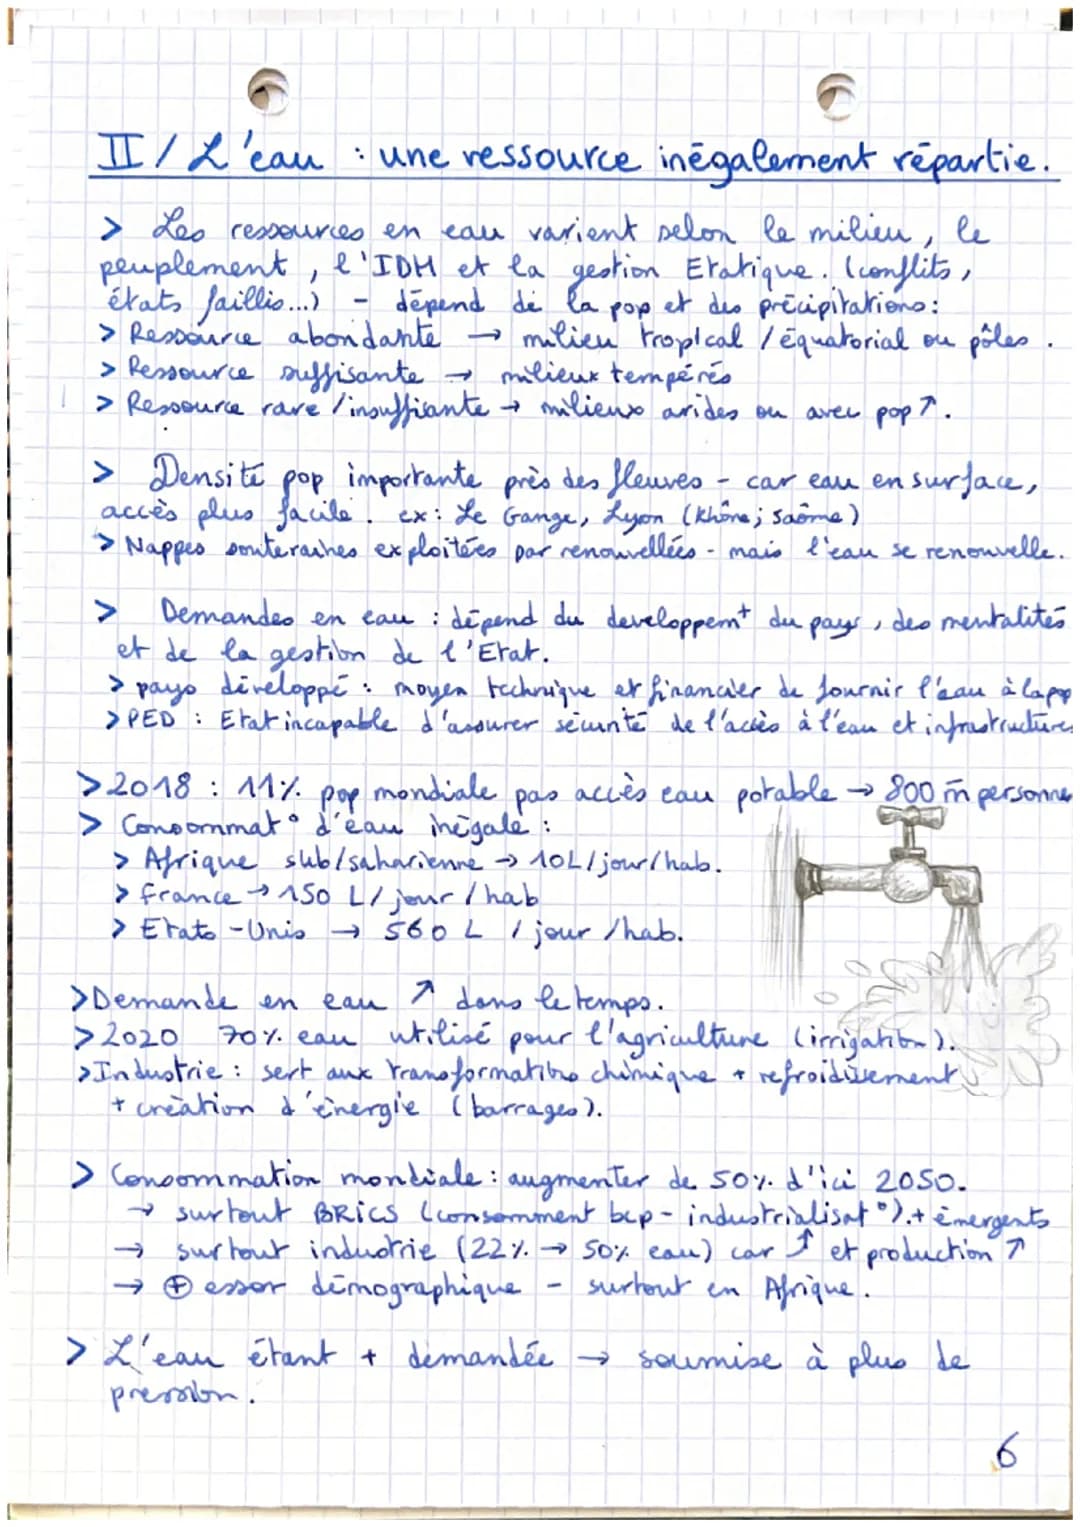 II / L'eau : une ressource inégalement répartie.
> Les ressources en eau varient selon le milieu, le
peuplement, l'IDH et la gestion Etatique. (conflits,
états faillis...) - dépend de la pop et des précipitations :
> Ressource abondante → milieu tropical / équatorial ou pôles.
> Ressource suffisante → milieux tempérés
> Ressource rare / insuffiante → milieux arides ou avec pop ↗.
> Densité pop importante près des fleuves - car eau en surface,
accès plus facile. ex : Le Gange, Lyon (Rhône ; Saône)
> Nappes souteraines exploitées par renouvellées - mais l'eau se renouvelle.
> Demandes en eau : dépend du developpemt du pays, des mentalités
et de la gestion de l'Etat.
> pays développé : moyen technique et financier de fournir l'eau à la pop
> PED : Etat incapable d'assurer sécurité de l'accès à l'eau et infrastructures
> 2018 : 11% pop mondiale pas accès eau potable → 800 m personne
> Consommat° d'eau inégale :
> Afrique sub/saharienne → 10L/jour/hab.
> France → 150 L / jour / hab
> Etats-Unis → 560 L / jour /hab.
> Demande en eau ↗ dans le temps.
> 2020 70% eau utilisé pour l'agriculture (irrigation).
> Industrie : sert aux transformations chimique + refroidissement
+ création d'énergie (barrages).
> Consommation mondiale : augmenter de 50% d'ici 2050.
→ surtout BRICS (consomment bcp - industrialisat°).+ émergents
→ surtout industrie (22% → 50% eau) car ↑ et production ↗
→ ⊕ essor démographique - surtout en Afrique.
> L'eau étant + demandée → soumise à plus de
pression.
6